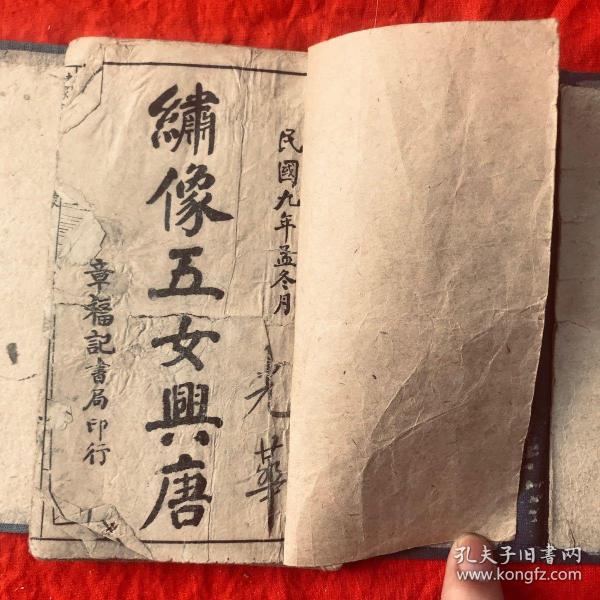 民國九年孟冬月
繡像五女興唐
章福記書局印行
光華
孔夫子旧书网
www.kongfz.com